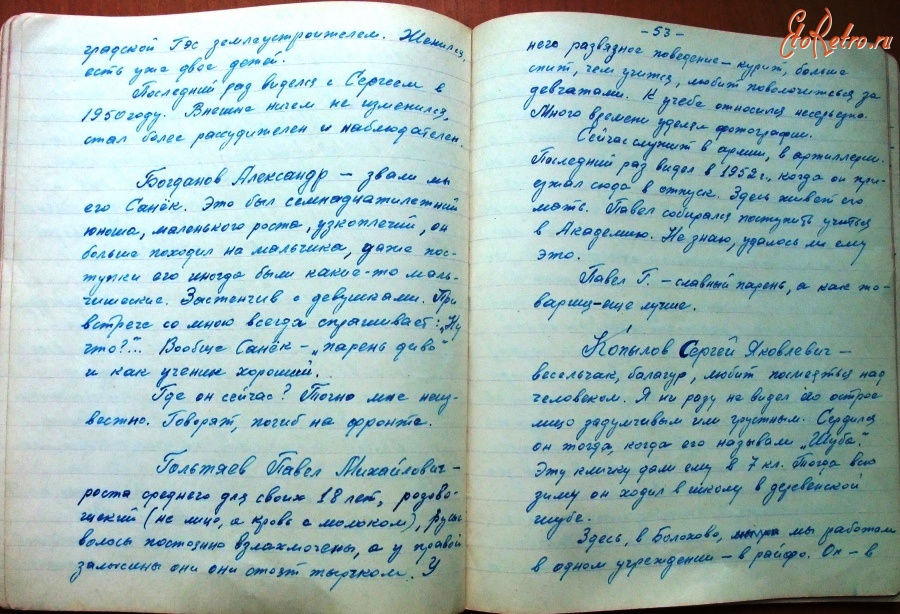 градской Гэс землеустроителем. Женился,
есть уже двое детей.
Последний раз виделся с Сергеем в
1950 году. Внешне ничем не изменился,
стал более рассудителен и наблюдателен.
Богданов Александр – звали мы
его Санёк. Это был семнадцатилетний
юноша, маленького роста, узкоплечий, он
больше походил на мальчика, даже пос-
тупки его иногда были какие-то маль-
чишеские. Застенчив с девушками. При
встрече со мною всегда спрашивает: „Ну
что?"... Вообще Санёк – „парень диво"
и как ученик хороший.
Где он сейчас? Точно мне неиз-
вестно. Говорят, погиб на фронте.
Гольтяев Павел Михайлович –
роста среднего для своих 18 лет, розово-
щекий (не лицо, а кровь с молоком), русые
волосы постоянно взлахмочены, а у правой
залысины они они стоят тырчком. У
- 53 -
него развязное поведение – курит, больше
спит, чем учится, любит поволочиться за
девчатами. К учебе относился несерьезно.
Много времени уделял фотографии.
Сейчас служит в армии, в артиллерии.
Последний раз видел в 1952 г., когда он при-
езжал сюда в отпуск. Здесь живет его
мать. Павел собирался поступить учиться
в Академию. Не знаю, удалось ли ему
это.
Павел Г. – славный парень, а как то-
варищ – еще лучше.
Копылов Сергей Яковлевич –
весельчак, балагур, любит посмеяться над
человеком. Я ни разу не видел его острое
лицо задумчивым или грустным. Сердился
он тогда, когда его называли „Шуба".
Эту кличку дали ему в 7 кл. Тогда всю
зиму он ходил в школу в деревенской
шубе.
Здесь, в Болохово, мы работали
в одном учреждении – в райфо. Он – в
EtoRetro.ru